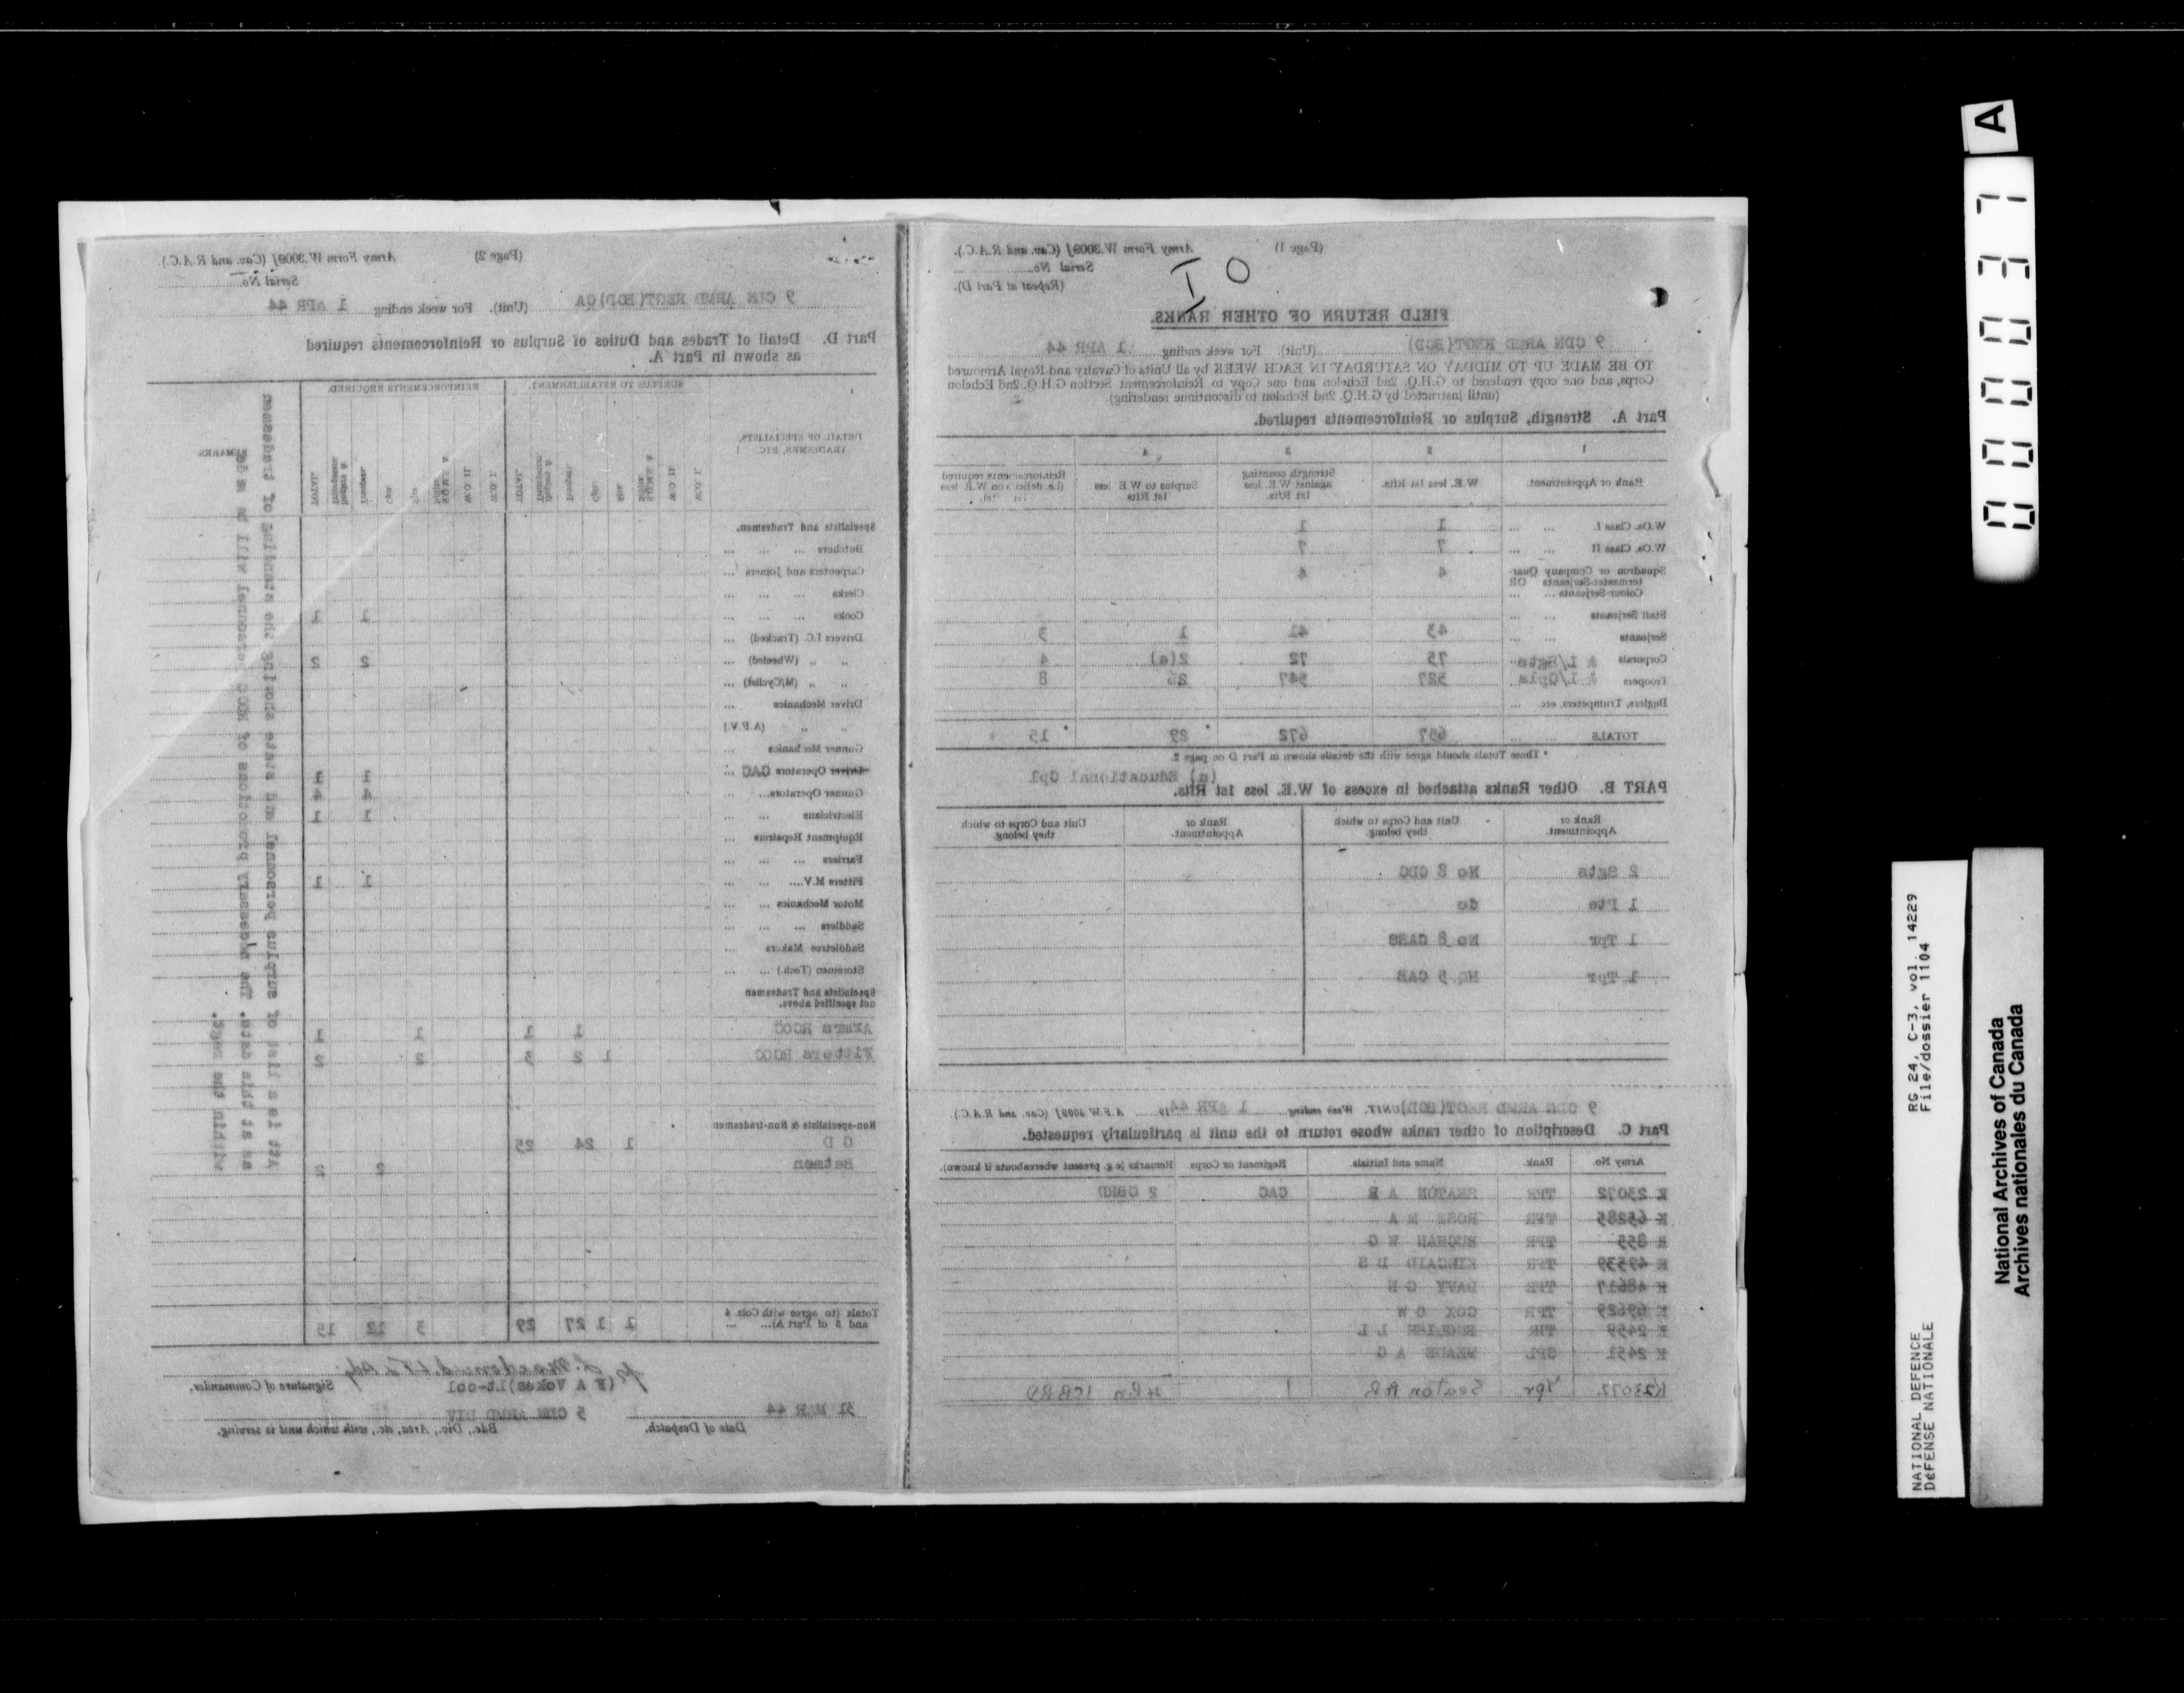 (Page 1) Army Form W.3009J (Cav. and R.A.C.).
Serial No.
(Repeat at Part D).
I O
FIELD RETURN OF OTHER RANKS.
9 CDN ARMD REGT(BCD) (Unit). For week ending 1 APR 44
TO BE MADE UP TO MIDDAY ON SATURDAY IN EACH WEEK by all Units of Cavalry and Royal Armoured
Corps, and one copy rendered to G.H.Q. 2nd Echelon and one Copy to Reinforcement Section G.H.Q. 2nd Echelon
(until instructed by G.H.Q. 2nd Echelon to discontinue rendering).
Part A. Strength, Surplus or Reinforcements required.
1 2 3 4
Rank or Appointment. W.E. less 1st Rfts. Strength counting against W.E. less 1st Rfts. Surplus to W.E. less 1st Rfts Reinforcements required
W.Os. Class I. ... ... 1 1
W.Os. Class II ... ... 7 7
Squadron or Company Quar- 4 4
termaster-Serjeants OR
Colour-Serjeants ... ...
Staff Serjeants ... ...
Serjeants ... ... 43 41 1 3
Corporals & L/Sgts 75 72 2(a) 4
Troopers & L/Cpls 527 547 26 8
Buglers, Trumpeters, etc. ...
TOTALS ... 657 672 * 29 * 15
* These Totals should agree with the details shown in Part D on page 2.
(a) Educational Cpl
PART B. Other Ranks attached in excess of W.E. less 1st Rfts.
Rank or Appointment. Unit and Corps to which they belong. Rank or Appointment. Unit and Corps to which they belong.
2 Sgts No 8 CDC
1 Pte do
1 Tpr No 8 CASS
1 Tpr HQ 5 CAB
9 CDN ARMD REGT(BCD) UNIT. Week ending 1 APR 44 A.F.W 3009J (Cav. and R.A.C.).
Part C. Description of other ranks whose return to the unit is particularly requested.
Army No. Rank. Name and Initials. Regiment or Corps Remarks (e.g. present whereabouts if known).
K 23072 TPR SEATON A R CAC 2 CBRD
K 65285 TPR ROSE M A
K 855 TPR BUCHAN W G
K 49539 TPR KINCAID D S
K 48617 TPR DAVY G H
K 69629 TPR COX G W
K 2459 TPR ENGLISH L L
K 2451 CPL MEADE A G
K23072 Tpr Seaton A.R.
(Page 2) Army Form W.3009J (Cav. and R.A.C.).
Serial No.
9 CDN ARMD REGT(BCD)CA (Unit). For week ending 1 APR 44
Part D. Detail of Trades and Duties of Surplus or Reinforcements required
as shown in Part A.
DETAIL OF SPECIALISTS, TRADESMEN, ETC. SURPLUS TO ESTABLISHMENT. REINFORCEMENTS REQUIRED. REMARKS.
W.O. I. W.O. II. TOTAL. W.O. I. W.O. II. TOTAL.
Specialists and Tradesmen.
Butchers ... ... ...
Carpenters and Joiners ...
Clerks ... ... ...
Cooks ... ... ... 1 1
Drivers I.C. (Tracked) ...
,, ,, (Wheeled) ... 2 2
,, ,, (M/Cyclist) ...
Driver Mechanics ...
,, ,, (A.F.V.)
Gunner Mechanics ...
Driver Operators CAC ... 1 1
Gunner Operators... ... 4 4
Electricians ... ... 1 1
Equipment Repairers ...
Farriers ... ... ...
Fitters M.V.... ... ... 1 1
Motor Mechanics ... ...
Saddlers ... ... ...
Saddletree Makers ...
Storemen (Tech.) ... ...
Specialists and Tradesmen
not specified above.
Armrs RCOC 1 1 1 1
Fitters RCOC 1 2 3 2 2
Non-specialists & Non-tradesmen
G D 1 24 25
Batmen 2 2
Totals (to agree with Cols. 4
and 5 of Part A)... ... 1 1 27 29 3 12 15
Att is list of surplus personnel and state showing the standing of tradesmen
as at this date. The necessary promotions of RCOC personnel will be made
within the regt.
(F A Vokes) Lt-Col Signature of Commander.
31 MAR 44 5 CDN ARMD DIV
Date of Despatch. Bde., Div., Area, &c., with which unit is serving.
A
0000037
NATIONAL DEFENCE RG 24, C-3, vol. 14229
DÉFENSE NATIONALE File/dossier 1104
National Archives of Canada
Archives nationales du Canada